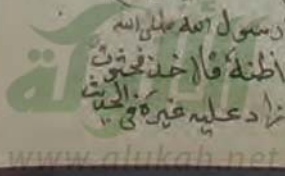 رسول الله صلى الله
اظنه قال خذ
زاد عليه غيره في الحديث
www.alukah.net